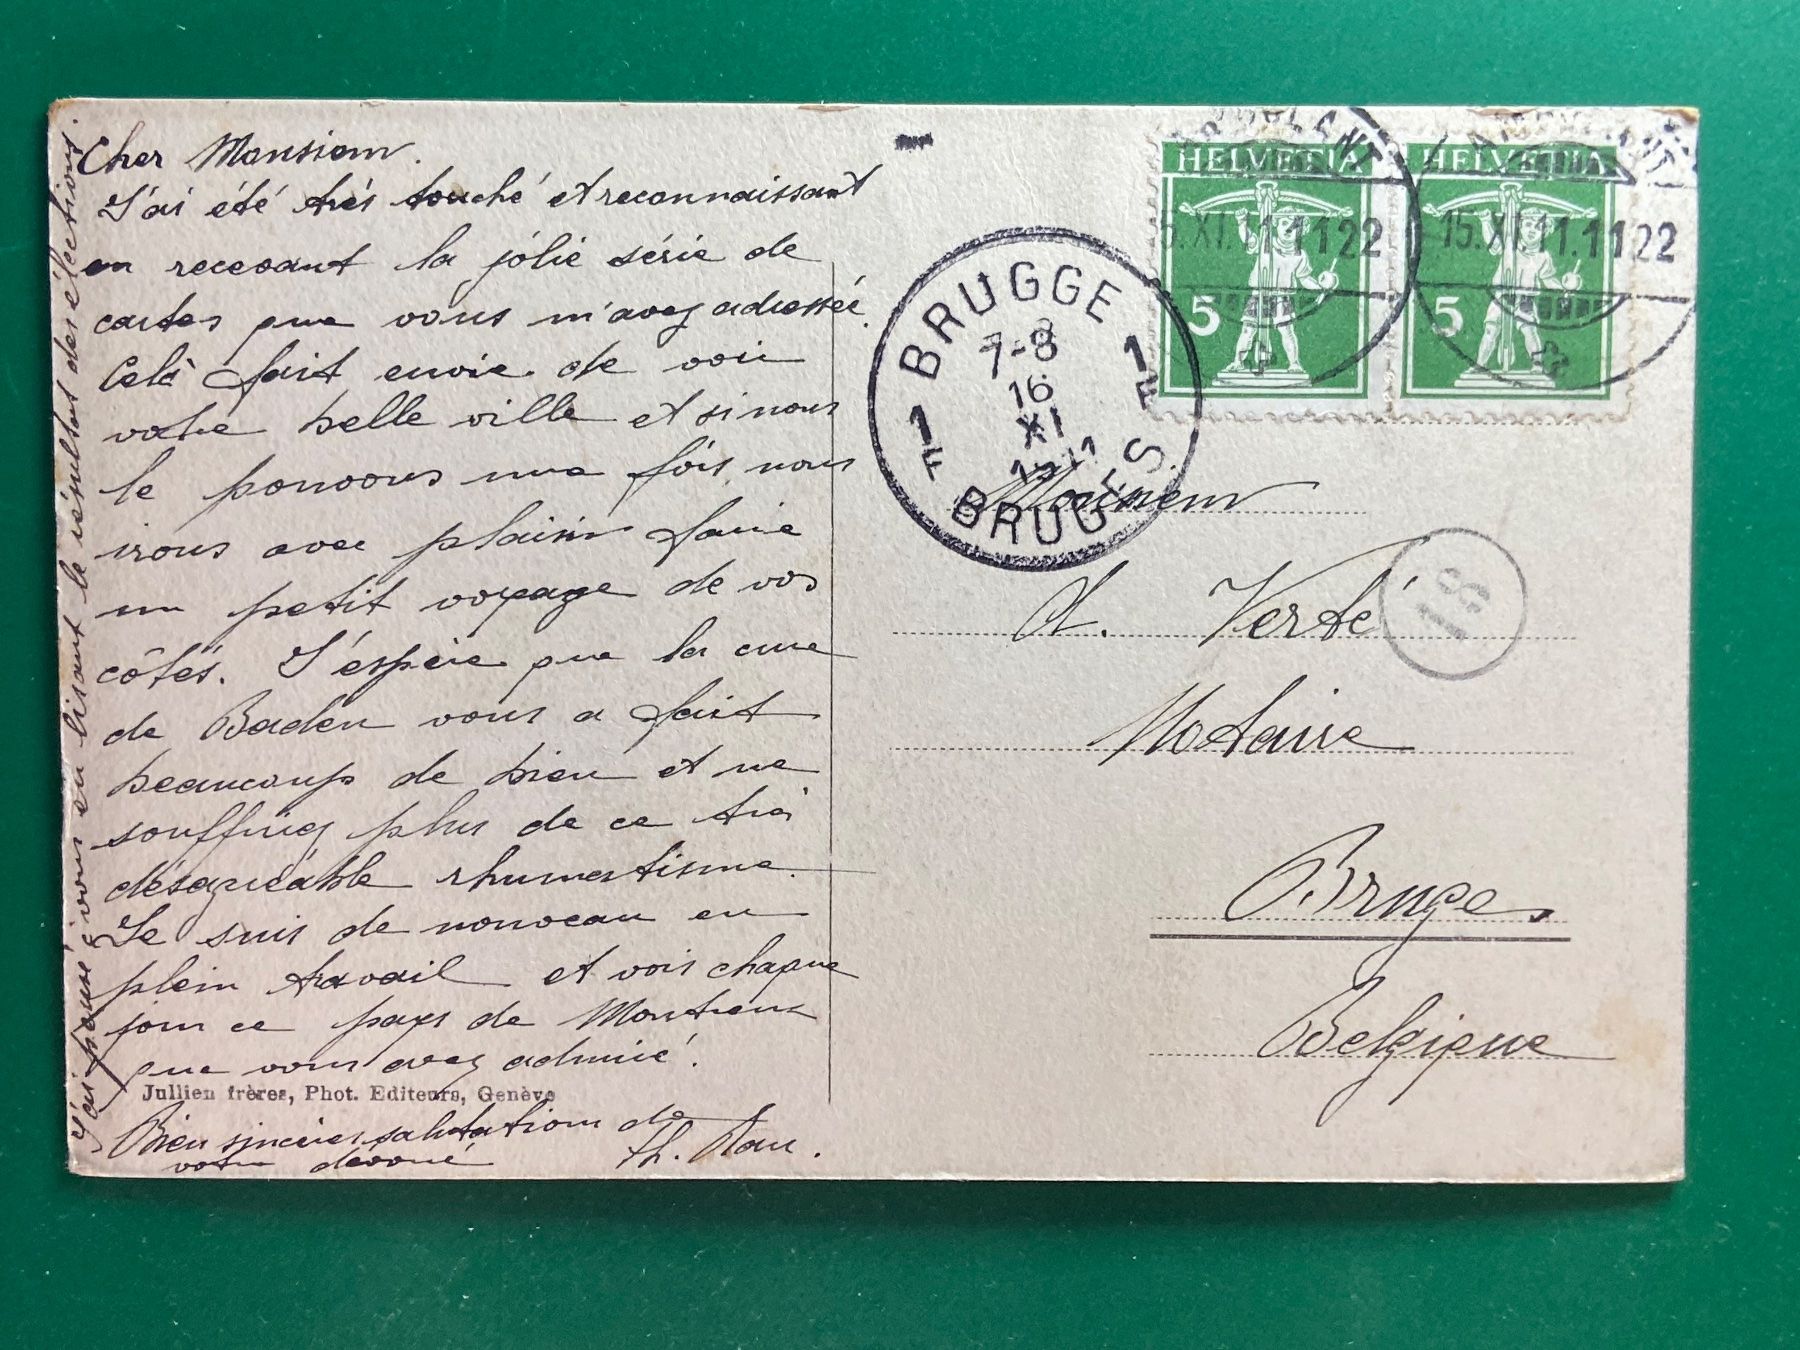 Cher Monsieur.
J'ai été très touché et reconnaissant
en recevant la jolie série de
cartes que vous m'avez adressée.
Celà fait envie de voir
votre belle ville et si nous
le pouvons une fois nous
irons avec plaisir faire
un petit voyage de vos
côtés. J'espère que la cure
de Baden vous a fait
beaucoup de bien et ne
souffriez plus de ce très
désagréable rhumatisme.
Je suis de nouveau en
plein travail et vois chaque
jour ce pays de Montreux
que vous avez admiré.
Jullien frères, Phot. Editeurs, Genève
Bien sincères salutations de
votre dévoué Th. Rau.
J'ai pensé à vous en lisant le résultat des élections.
HELVETIA
5
HELVETIA
5
AMBULANT
15.XI.11.1122
AMBULANT
15.XI.11.1122
BRUGGE
7-8
16
XI
1911
1F
1F
BRUGES
18
Monsieur
A. Verté
Notaire
Bruges
Belgique